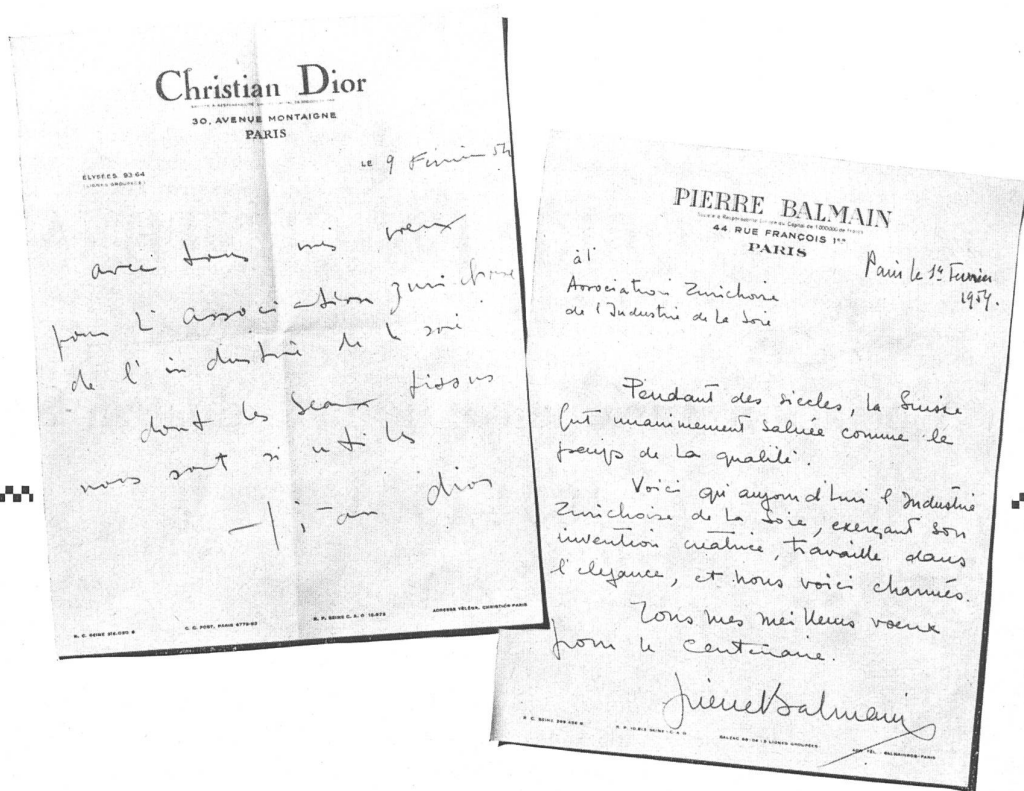 Christian Dior
30, AVENUE MONTAIGNE
PARIS
ÉLYSÉES 93-64
(LIGNES GROUPÉES)
LE 9 Février 54
avec tous mes vœux
pour l'association zurichoise
de l'industrie de la soie
dont les beaux tissus
nous sont si utiles
dior
R. C. SEINE
C. C. POST. PARIS 6779-92
ADRESSE TÉLÉGR. CHRISTIOR-PARIS
PIERRE BALMAIN
Société à Responsabilité Limitée au Capital de de Francs
44 RUE FRANÇOIS 1ER
PARIS
Paris le 1er Février
1954.
à l'
Association Zurichoise
de l'Industrie de La Soie
Pendant des siècles, la Suisse
fut unanimement saluée comme le
pays de La qualité.
Voici qu'aujourd'hui l'Industrie
Zurichoise de La Soie, exerçant son
invention créatrice, travaille dans
l'élégance, et nous voici charmés.
Tous mes meilleurs voeux
pour le Centenaire.
Pierre Balmain
R. C. SEINE
LIGNES GROUPÉES